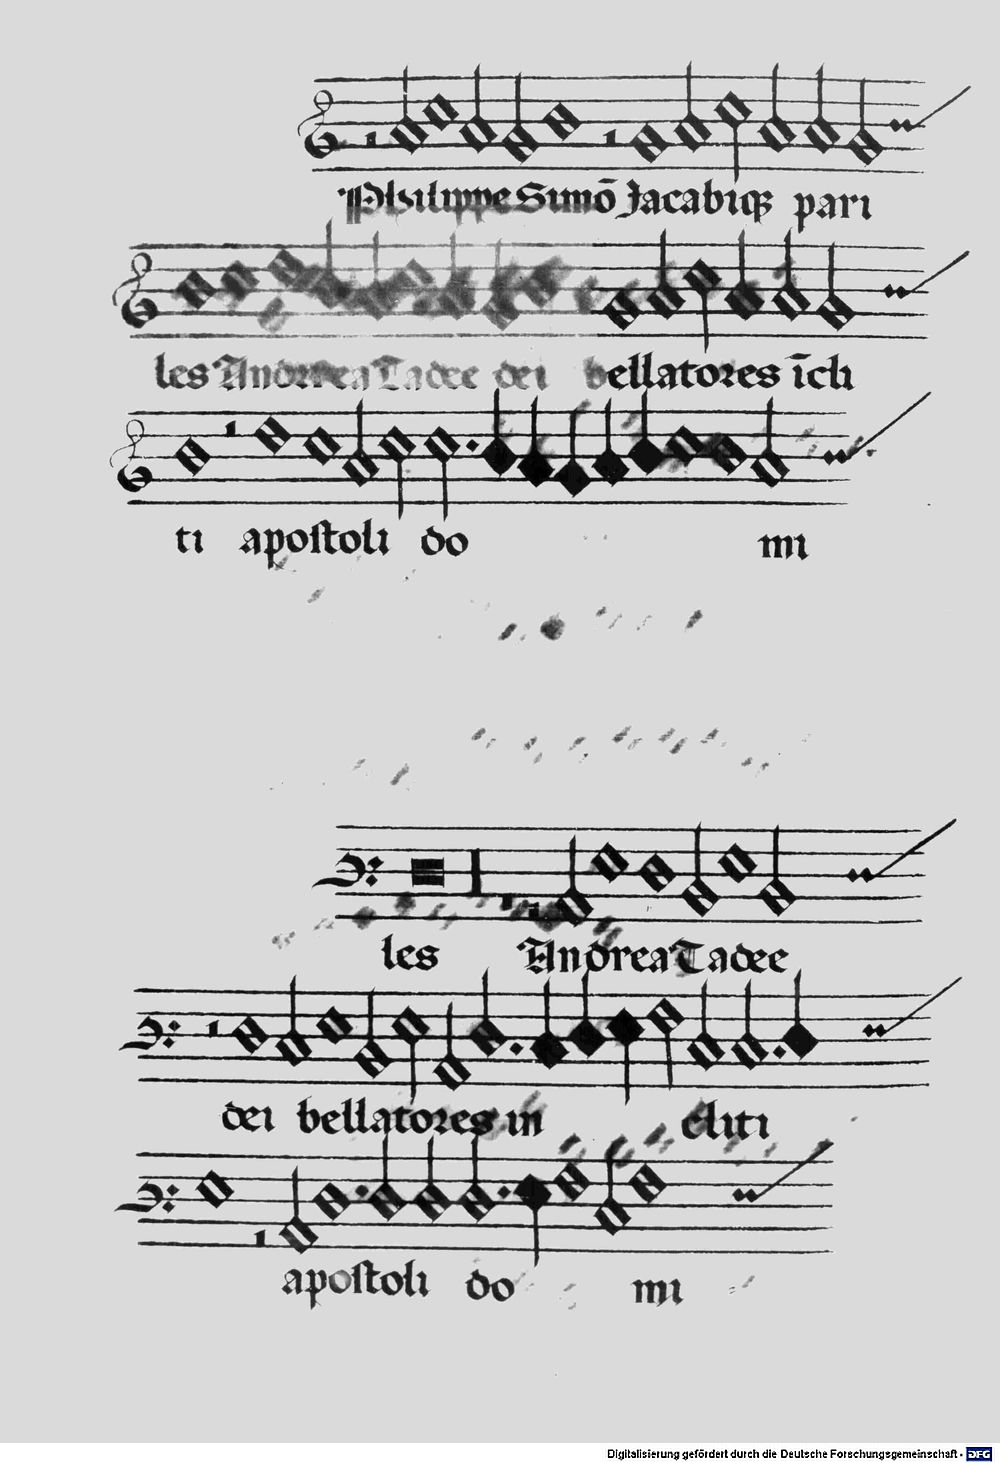 Philippe Simō Jacabiqꝫ pari
les Andrea Tadee dei bellatores īcli
ti apostoli do mi
les Andrea Tadee
dei bellatores in cliti
apostoli do mi
Digitalisierung gefördert durch die Deutsche Forschungsgemeinschaft - DFG